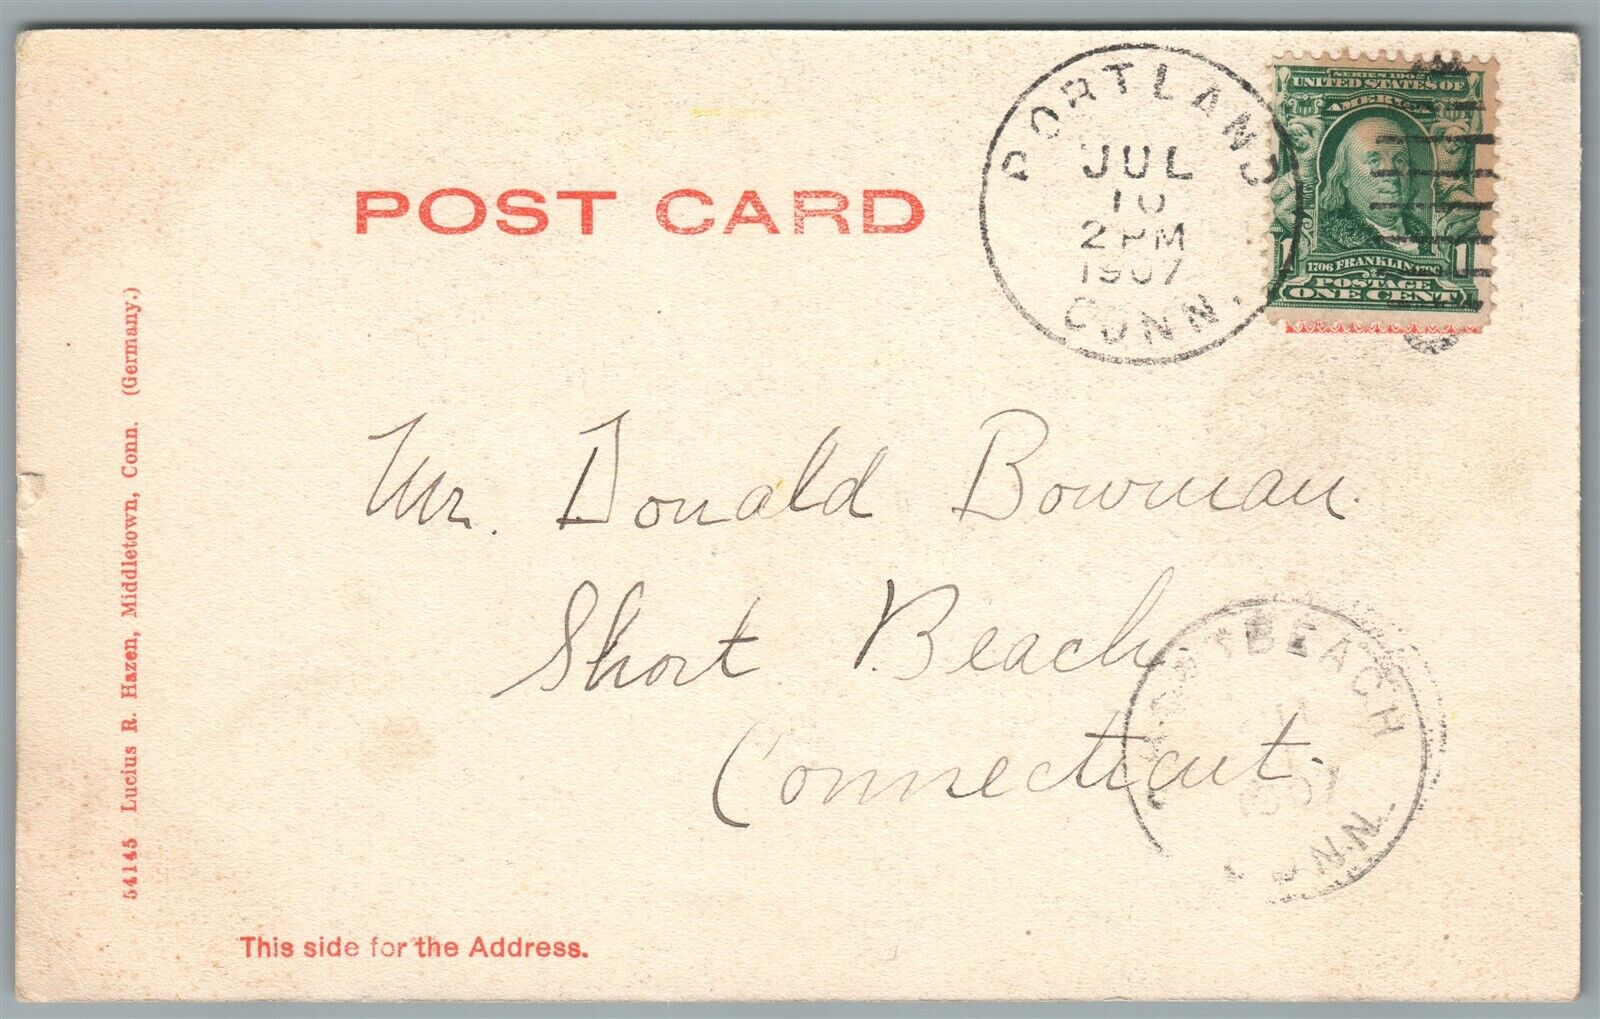 POST CARD
PORTLAND
JUL
10
2 PM
1907
CONN.
SERIES 1902
UNITED STATES OF
AMERICA
1 1
1706 FRANKLIN 1790
POSTAGE
ONE CENT
54145 Lucius R. Hazen, Middletown, Conn. (Germany.)
Mr. Donald Bowman.
Short Beach
Connecticut.
BEACH
This side for the Address.